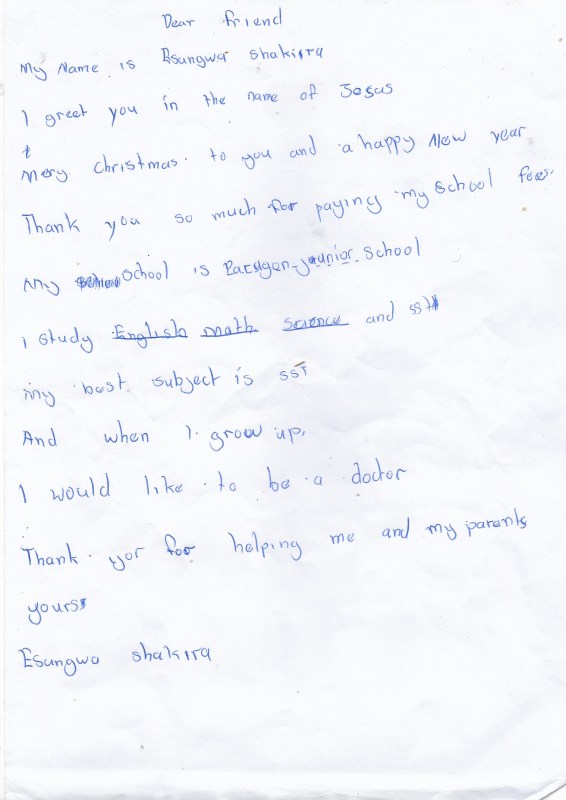 Dear friend
My Name is Esungwa shakiira
I greet you in the name of Jesus
Mery Christmas to you and a happy New year
Thank you so much for paying my school fees.
My school is Paragon junior School
I study English math science and sst
my best subject is SST
And when I grow up,
I would like to be a doctor
Thank yor for helping me and my parents
yours
Esungwa shakira